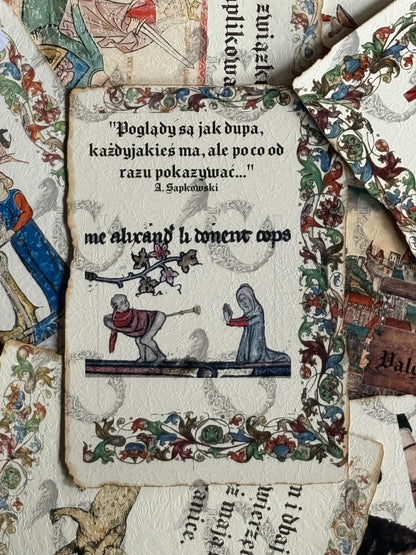 "Poglądy są jak dupa,
każdyjakieś ma, ale po co od
razu pokazywać..."
A. Sapkowski
me alixand' li donent cops
związki
plikowa
Valc
n i błaj
wierze
ż maja
anice.